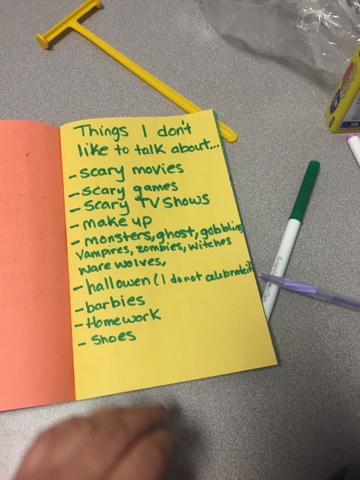 Things I don't
like to talk about...
- scary movies
- scary games
- Scary TV Shows
- make up
- monsters, ghost, gobbling
vampires, zombies, witches
ware wolves,
- hallowen (I do not celebrate it)
- barbies
- Homework
- Shoes